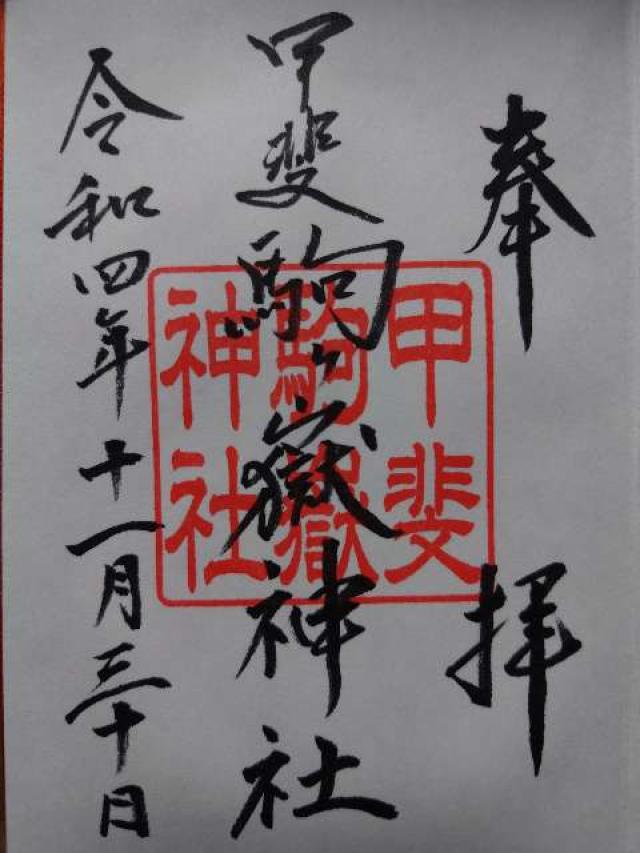 奉拝
甲斐駒ヶ嶽神社
甲斐
駒嶽
神社
令和四年十一月三十日